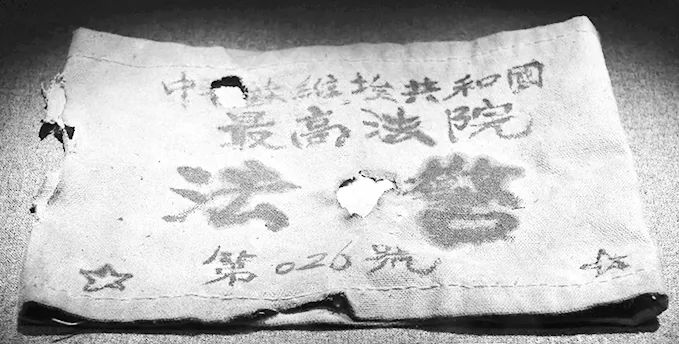 中蘇維埃共和國
最高法院
法警
第026號